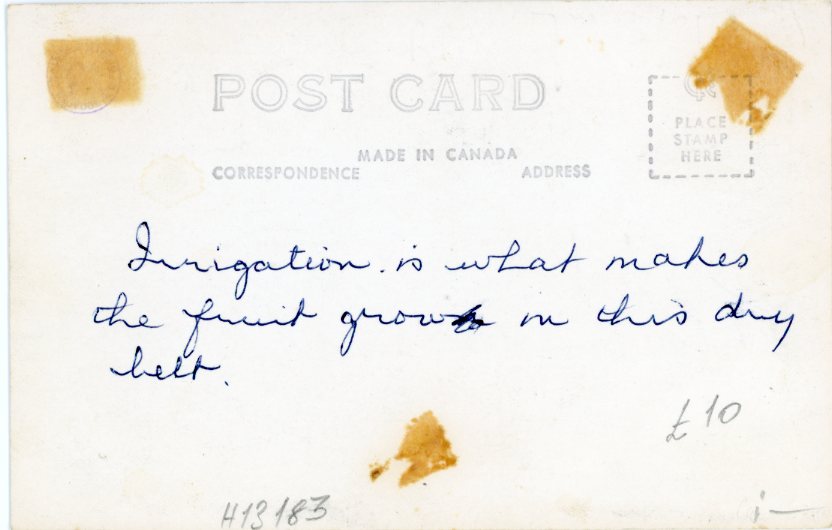 POST CARD
MADE IN CANADA
CORRESPONDENCE ADDRESS
PLACE
STAMP
HERE
Irrigation is what makes
the fruit grow in this dry
belt.
£10
H13183